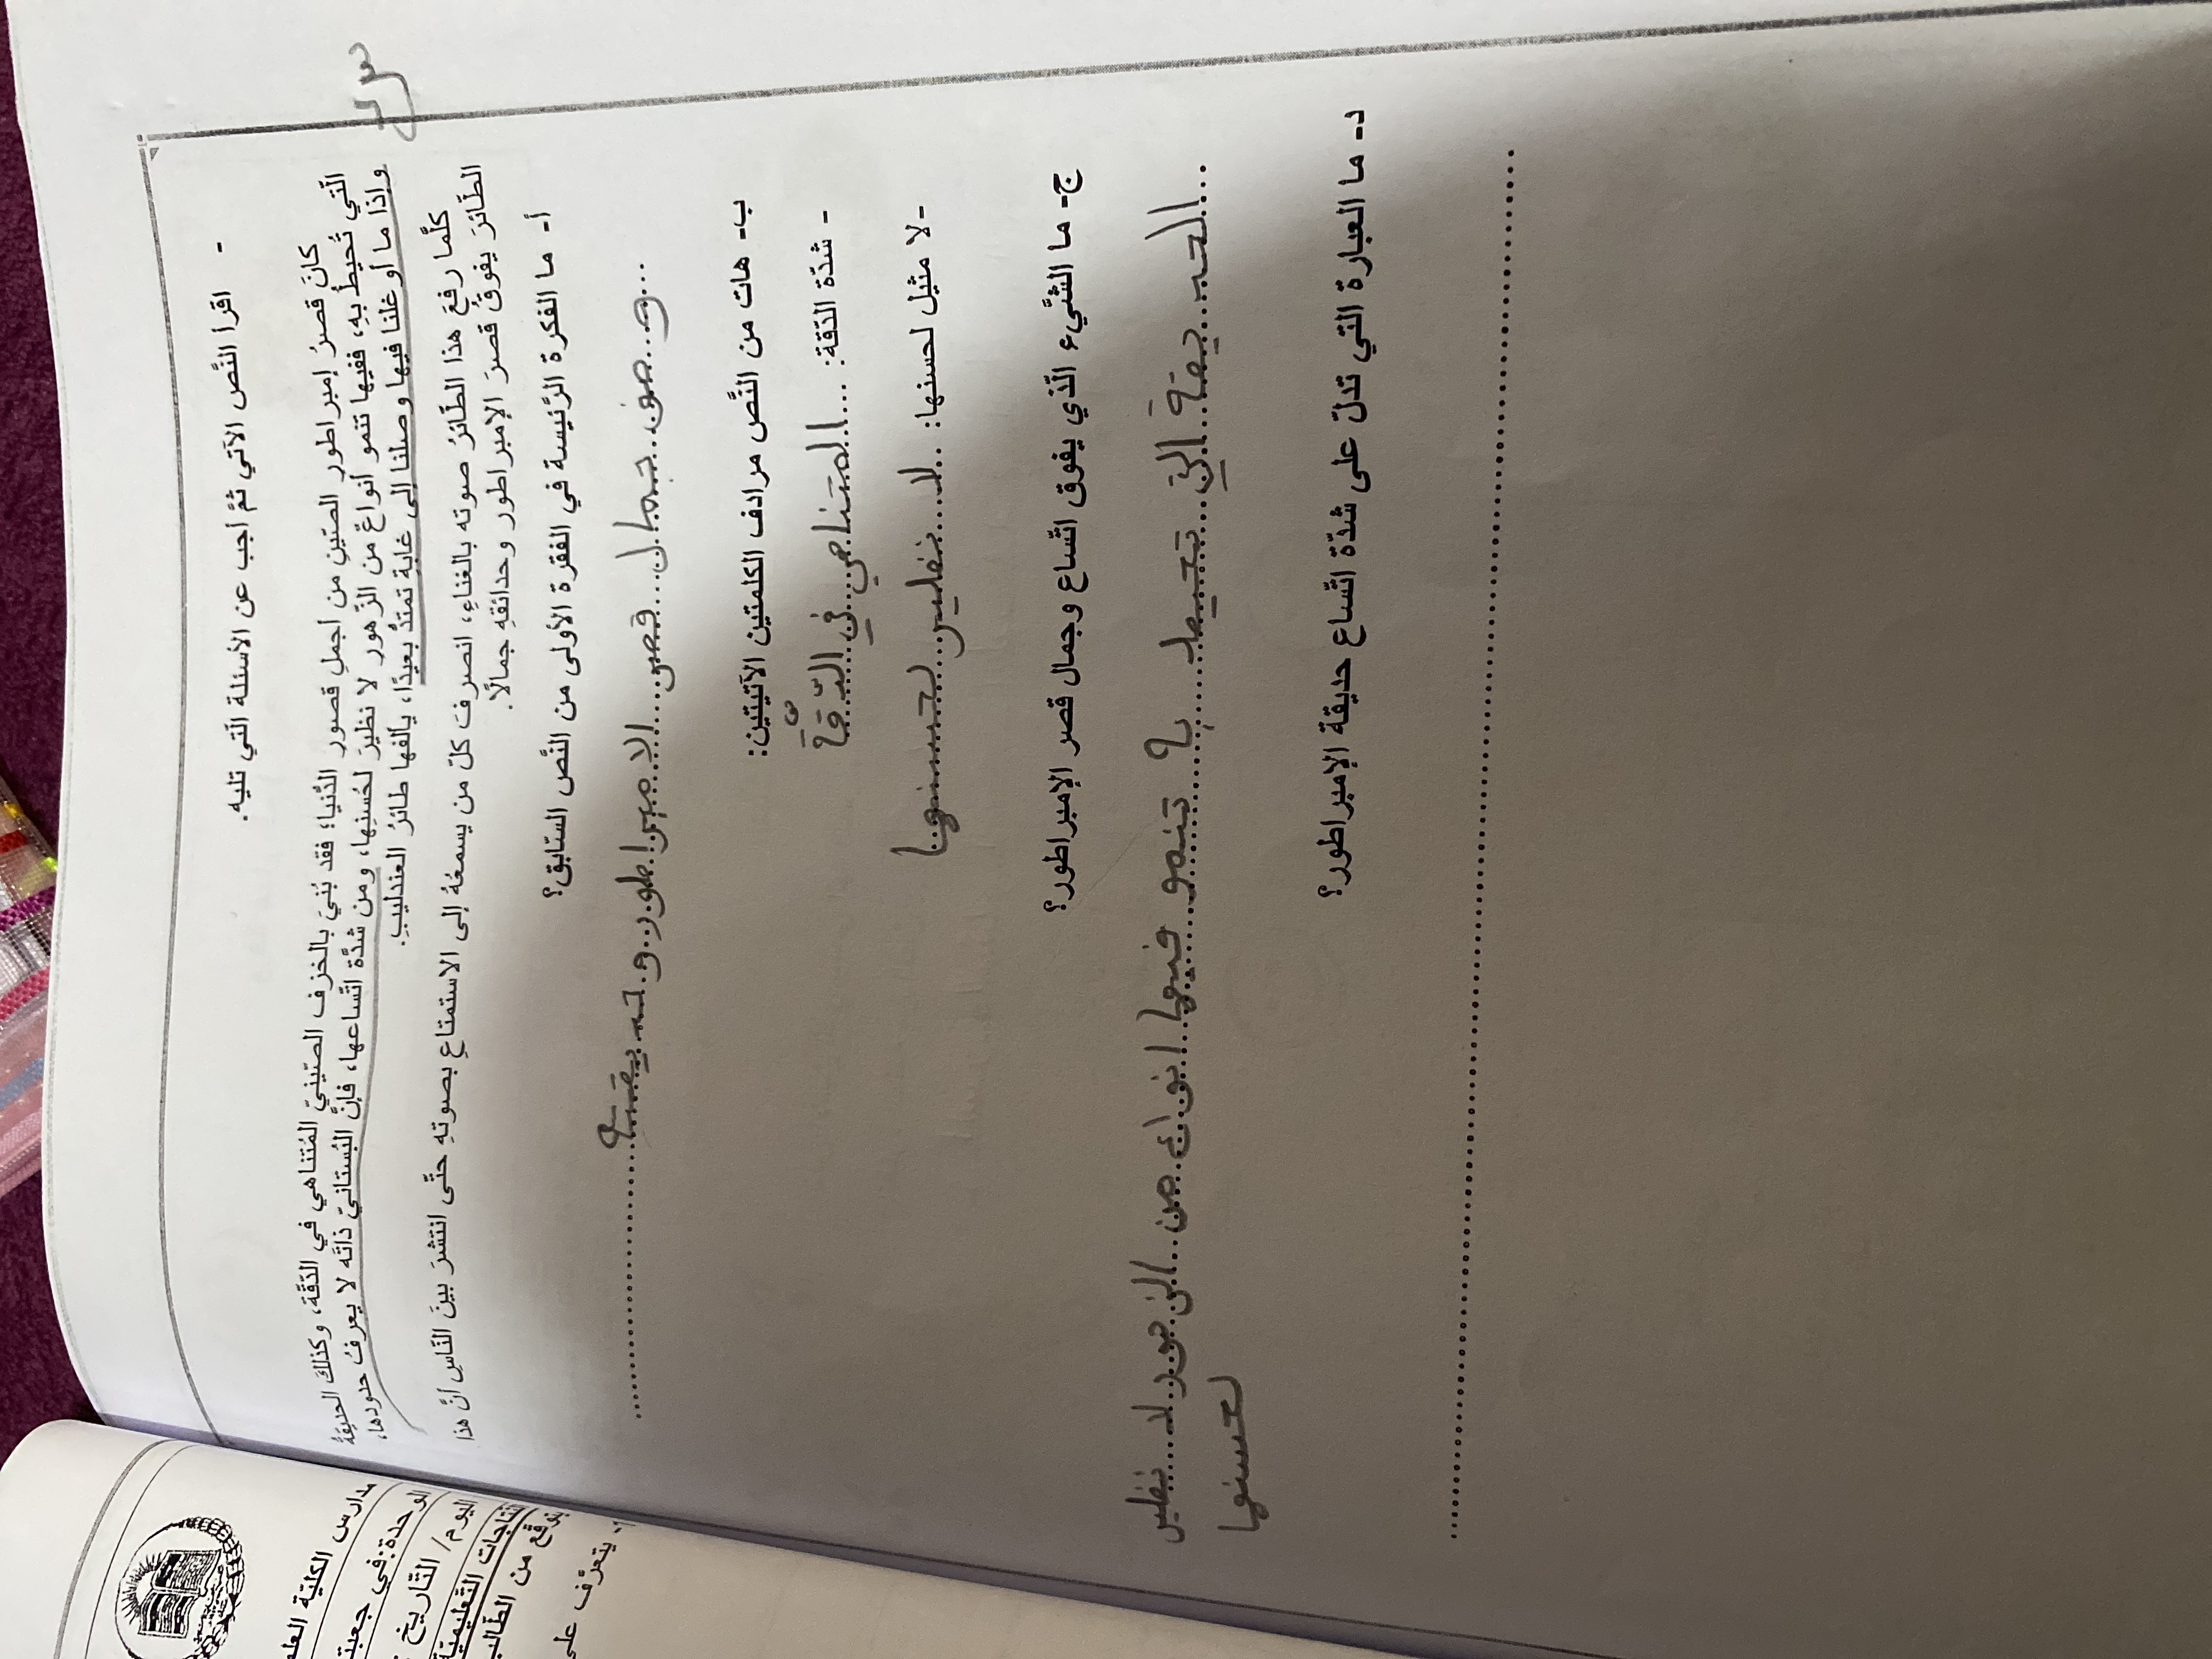 - اقرا النَّص الآتي ثمَّ أجب عن الأسئلة الَّتي تليه.
كانَ قصرُ إمبراطور الصّينِ من أجملِ قصور الدُّنيا؛ فقد بُنيَ بالخزف الصّينيّ المُتناهي في الدّقَّة، وكذلكَ الحديقةُ
الّتي تُحيطُ بهِ، ففيها تنمو أنواعٌ من الزّهور لا نظيرَ لحُسنِها، ومن شدَّة اتّساعها، فإنَّ البُستانيّ ذاتَه لا يعرفُ حدودها،
وإذا ما أوغلنا فيها وصلنا إلى غابةٍ تمتدُّ بعيدًا، يألفها طائرُ العندليبِ.
كلَّما رفعَ هذا الطّائرُ صوته بالغناءِ، انصرفَ كلّ من يسمعُهُ إلى الاستمتاعِ بصوتهِ حتَّى انتشرَ بينَ النَّاسِ أنَّ هذا
الطّائرَ يفوقُ قصرَ الإمبراطور وحدائقهِ جمالًا.
أ- ما الفكرة الرَّئيسة في الفقرة الأولى من النَّص السَّابق؟
و صف جمال قصر الامبراطور و حديقته
ب- هات من النَّص مرادف الكلمتين الآتيتين:
- شدّة الدّقة: المتناهي في الدّقَّة
- لا مثيل لحسنها: لا نظير لحسنها
ج- ما الشّيء الّذي يفوق اتّساع وجمال قصر الإمبراطور؟
الحديقة التي تحيط به تنمو فيها انواع من الزهور لا نظير
لحسنها
د- ما العبارة التي تدلّ على شدّة اتّساع حديقة الإمبراطور؟
مدارس الكليّة
الوحدة: في جعبة
اليوم/ التّاريخ
النّتاجات التّعليميّة
يتوقّع من الطّالب
١- يتعرّف على